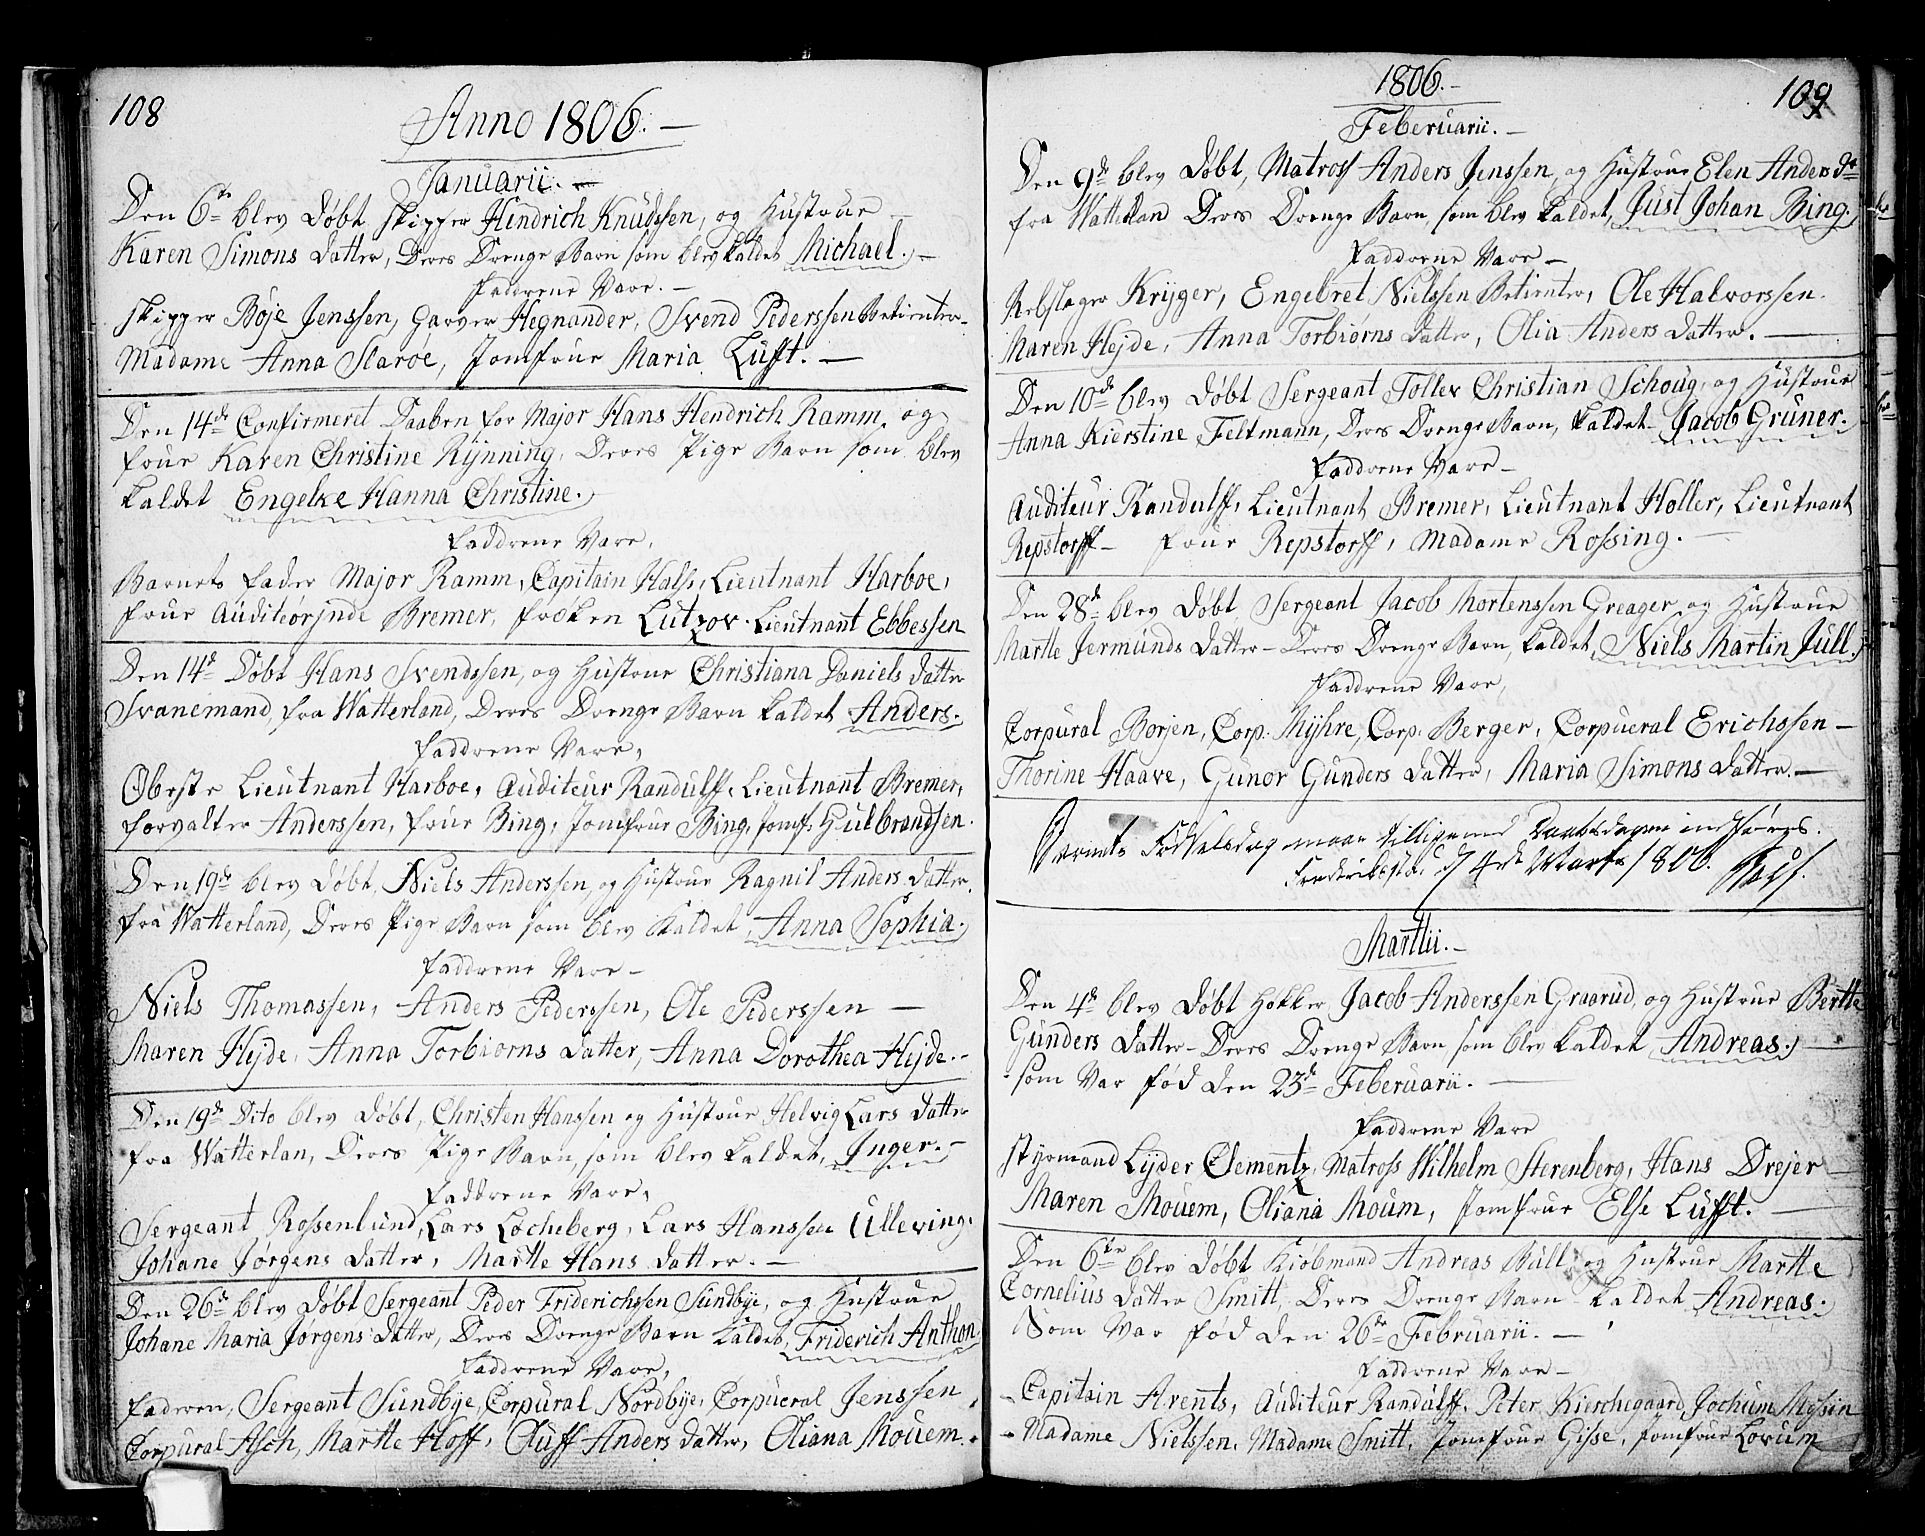 108
Anno 1806. —
Januarii. —
Den 6te blev døbt Skipper Hindrich Knudssen, og Hustrue
Karen Simons datter, Deres Drenge Barn som blev kaldet Michael. —
Faddrene Vare. —
Skipper Böje Jenssen, Garver Hegnander, Svend Pederssen Betienter
Madame Anna Slaröe, Jomfrue Maria Lüfft. —
Den 14de Confirmeret Daaben for Major Hans Hendrich Ramm, og
Frue Karen Christine Rÿnning, Deres Pige Barn som blev
kaldet Engelke Hanna Christine.
Faddrene Vare,
Barnets Fader Major Ramm, Capitain Hals, Lieutnant Harboe,
Frue Auditeörinde Bremer, Frøken Lützov. Lieutnant Ebbessen
Den 14d Døbt Hans Svendssen, og Hustrue Christiana Daniels datter
Svanemand, fra Watterland, Deres Drenge Barn kaldet Anders.
Faddrene Vare,
Oberste Lieutnant Harboe, Auditeur Randulff, Lieutnant Bremer,
Forvalter Anderssen, Frue Bing, Jomfrue Bing, Jomf. Gulbrandsen.
Den 19de blev døbt, Niels Anderssen, og Hustrue Ragnil Anders datter
fra Watterland, Deres Pige Barn som blev kaldet, Anna Sophia.
Faddrene Vare —
Niels Thomassen, Anders Pederssen, Ole Pederssen —
Maren Hejde, Anna Torbiørns datter, Anna Dorothea Hejde. —
Den 19de Dito blev døbt, Christen Hanssen og Hustrue Helvig Lars datter
fra Watterlan, Deres Pige Barn, som blev kaldet, Inger. —
Faddrene Vare,
Sergeant Rossenlund, Lars Locheberg, Lars Hanssen Ulleving,
Johane Jørgens datter, Marthe Hans datter. —
Den 26de blev døbt Sergeant Peder Friderichssen Sundbÿe, og Hustrue
Johane Maria Jørgens datter, Deres Drenge Barn kaldet, Friderich Anthon
Faddrene Vare,
Faderen, Sergeant Sundbÿe, Corpural Nordbÿe, Corpueral Jenssen
Corpural Asch, Marthe Hoff, Oluff Anders datter, Oliana Mouem.
1806. —
109
Feberuarii. —
Den 9de blev døbt, Matross Anders Jenssen, og Hustrue Elen Anders dtr
fra Watterlan Deres Drenge Barn, som blev kaldet, Just Johan Bing.
Faddrene Vare —
Rebslager Krÿger, Engebret Nielssen Betienter, Ole Halvorssen.
Maren Hejde, Anna Torbiørns datter, Olia Anders datter. —
Den 10de blev døbt Sergeant Tollev Christian Schoug, og Hustrue
Anna Kierstine Feltmann, Deres Drenge Barn, kaldet Jacob Grüner.
Faddrene Vare —
Auditeur Randulff, Lieutnant Bremer, Lieutnant Holler, Lieutnant
Repstorff — Frue Repstorff, Madame Rossing. —
Den 28de blev døbt, Sergeant Jacob Mortenssen Greager, og Hustrue
Marthe Jermunds datter — Deres Drenge Barn, kaldet, Niels Martin Jüll.
Faddrene Vare,
Corpural Borjen, Corp. Mÿhre, Corp. Berger, Corpueral Erichssen —
Thorine Haave, Gunor Gunders datter, Maria Simons datter. —
Børnets Fødselsdag maae tilligemed Daabsdagen indføres.
Frederikstad d 4de Marts 1806.
Martii. —
Den 4de blev døbt Høkker Jacob Anderssen Graarud, og Hustrue Berthe
Gunders datter — Deres Drenge Barn som blev kaldet, Andreas.
som Var fød den 23de Feberuarii. —
Faddrene Vare
Stÿrmand Lÿder Clementz, Matross Wilhelm Sterenberg, Hans Drejer
Maren Mouem, Oliana Moum, Jomfrue Else Lufft. —
Den 6te blev døbt Kiøbmand Andreas Büll og Hustrue Marthe
Cornelius datter Smitt, Deres Drenge Barn kaldet Andreas.
Som Var fød den 26de Februarii. —
Faddrene Vare —
Capitain Arents, Auditeur Randulff, Peter Kierchegaard, Jochum Messin
Madame Nielssen, Madame Smitt, Jomfrue Gisse, Jomfrue Lovum